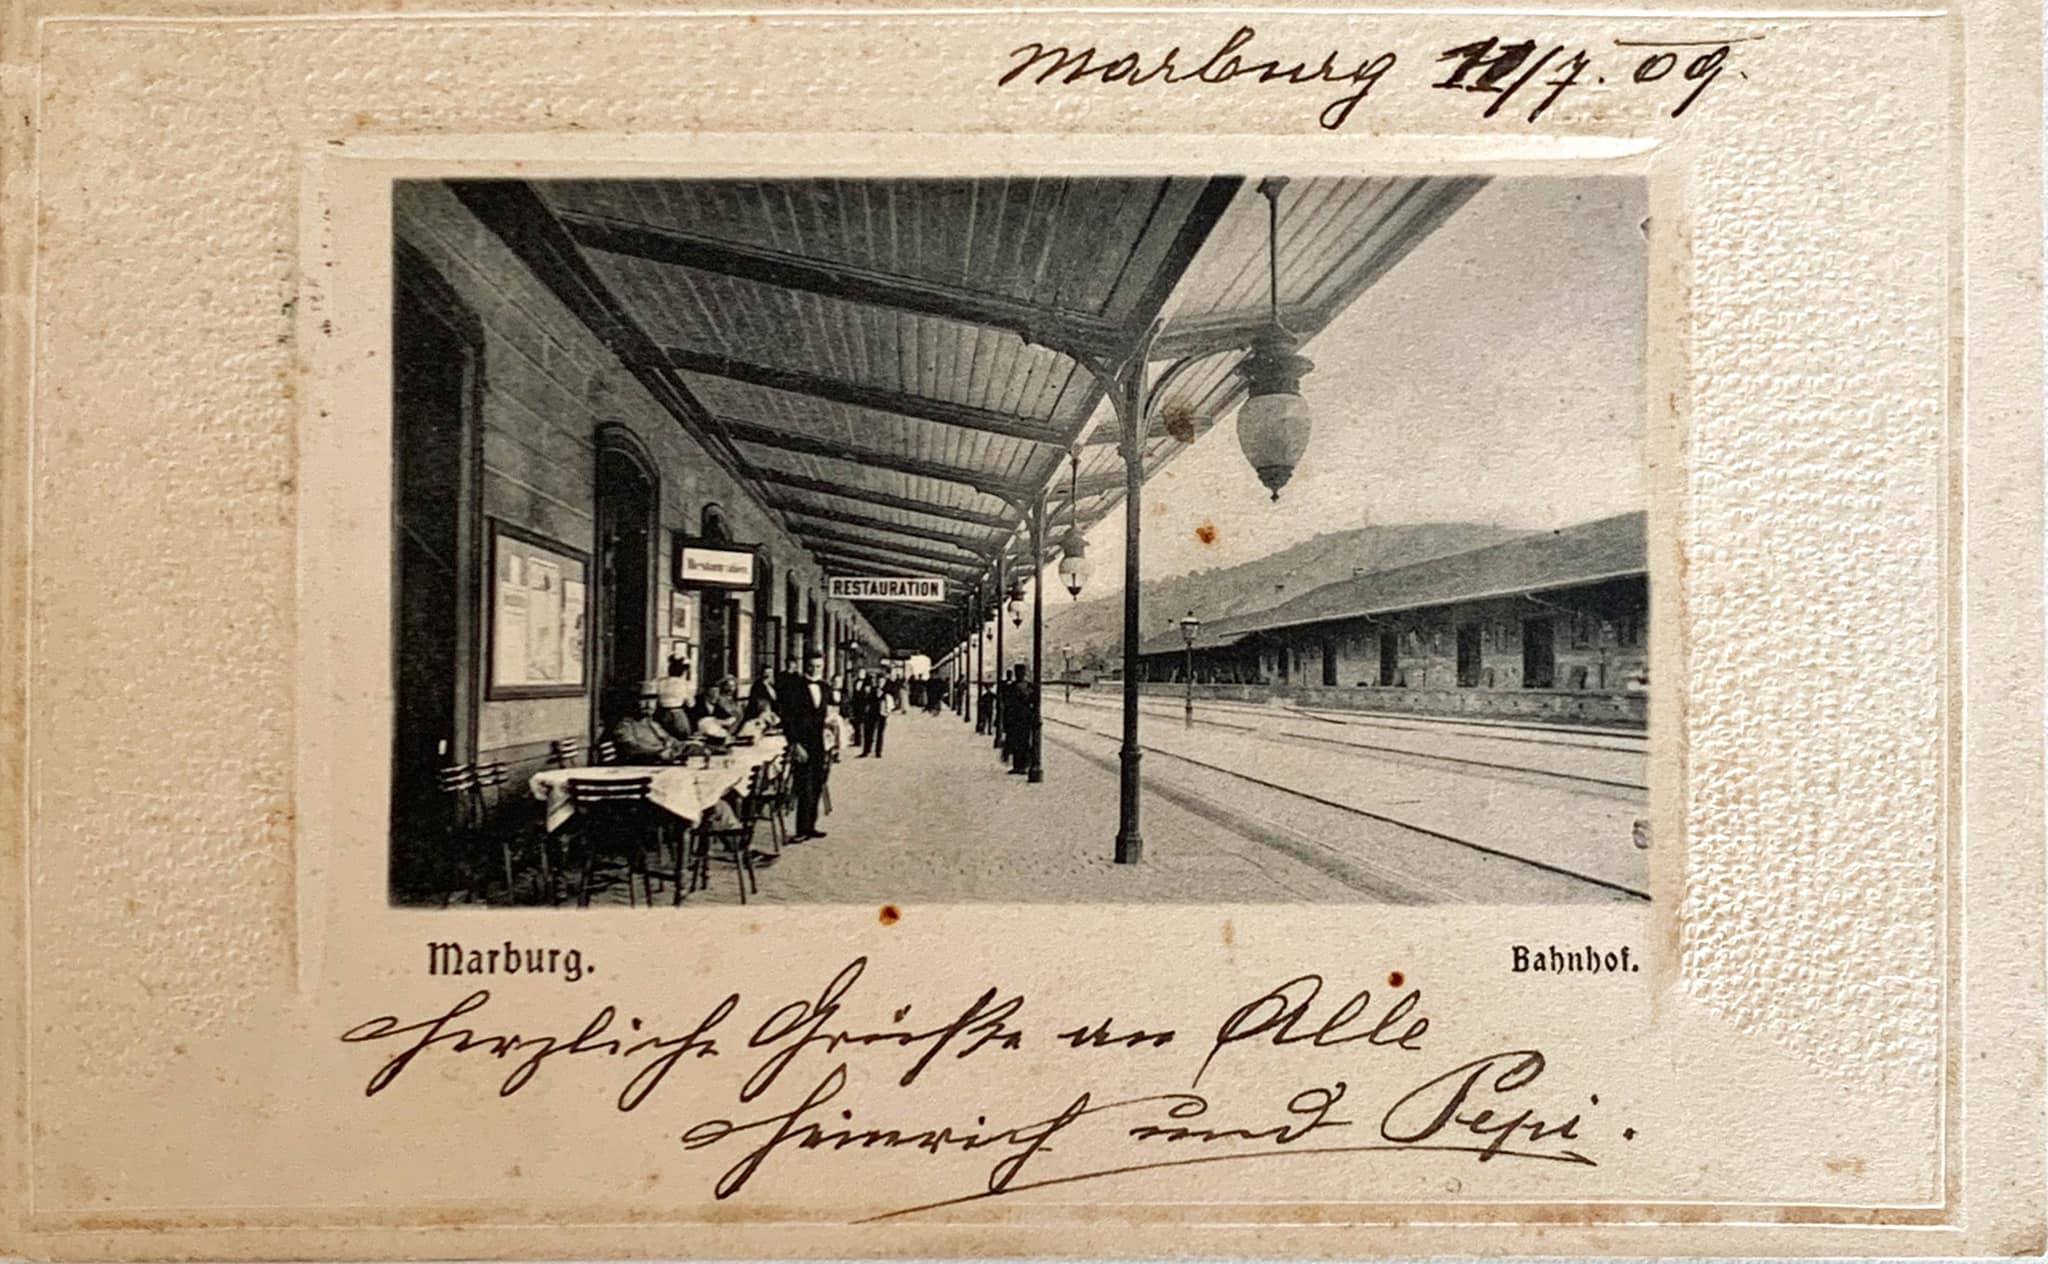 Marburg 11/7. 09.
Restauration
RESTAURATION
Marburg.
Bahnhof.
Herzliche Grüße an Alle
Heinrich und Pepi.